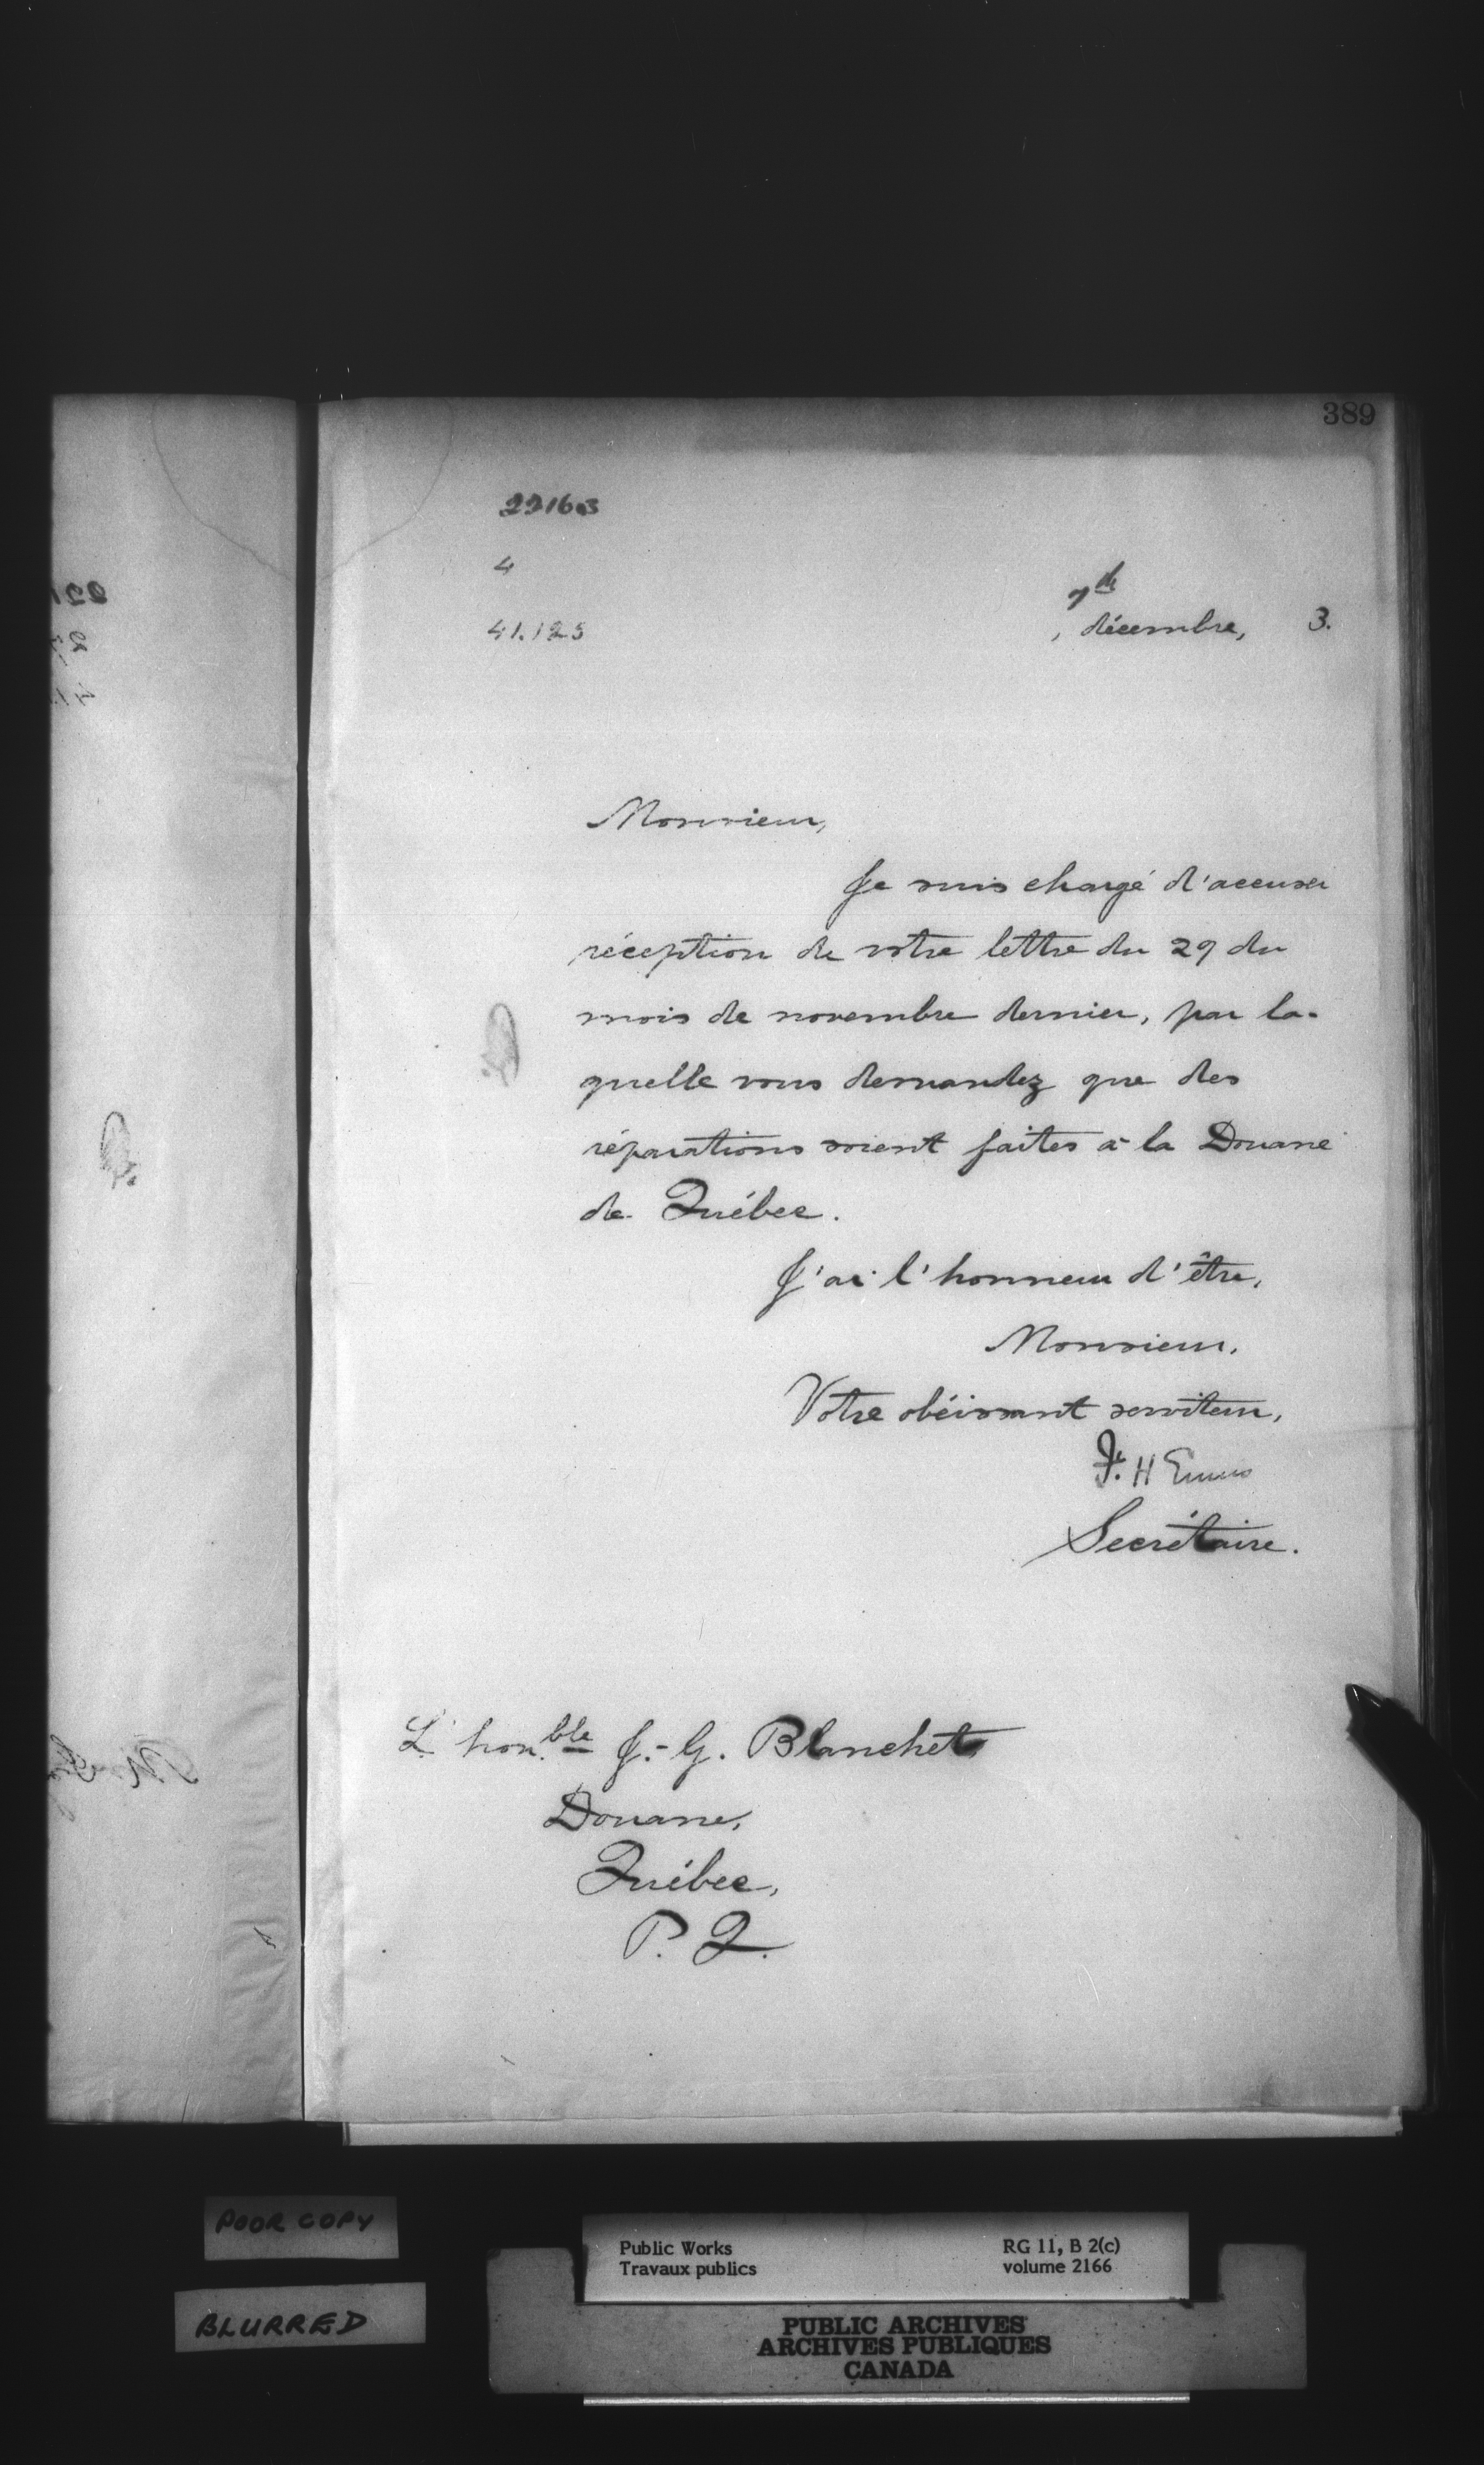 389
22163
4
41.125
7th
, décembre, 3.
Monsieur,
Je suis chargé d'accuser
réception de votre lettre du 29 du
mois de novembre dernier, par la-
quelle vous demandez que des
réparations soient faites à la Douane
de Québec.
J'ai l'honneur d'être,
Monsieur,
Votre obéissant serviteur,
F. H Ennis
Secrétaire.
L'hon.ble J.-G. Blanchet
Douane,
Québec,
P. Q.
POOR COPY
BLURRED
Public Works
Travaux publics
RG 11, B 2(c)
volume 2166
PUBLIC ARCHIVES
ARCHIVES PUBLIQUES
CANADA